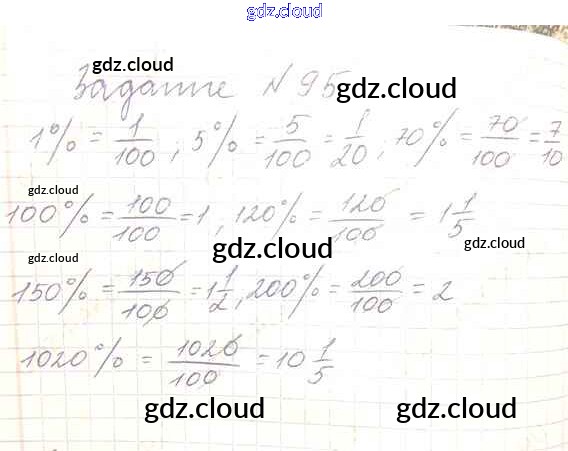 gdz.cloud
gdz.cloud
Задание N 95 gdz.cloud
1% = 1/100 ; 5% = 5/100 = 1/20 ; 70% = 70/100 = 7/10
gdz.cloud gdz.cloud
gdz.cloud
100% = 100/100 = 1 , 120% = 120/100 = 1 1/5
gdz.cloud gdz.cloud
gdz.cloud
150% = 150/100 = 1 1/2 , 200% = 200/100 = 2
1020% = 1020/100 = 10 1/5
gdz.cloud gdz.cloud